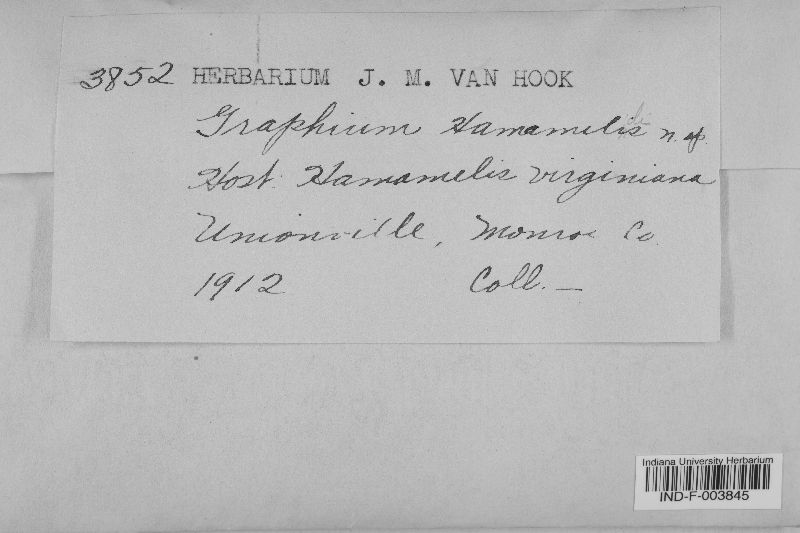 3852 HERBARIUM J. M. VAN HOOK
Graphium Hamamelidis n. sp.
Host: Hamamelis virginiana
Unionville, Monroe Co.
1912 Coll. —
Indiana University Herbarium
IND-F-003845